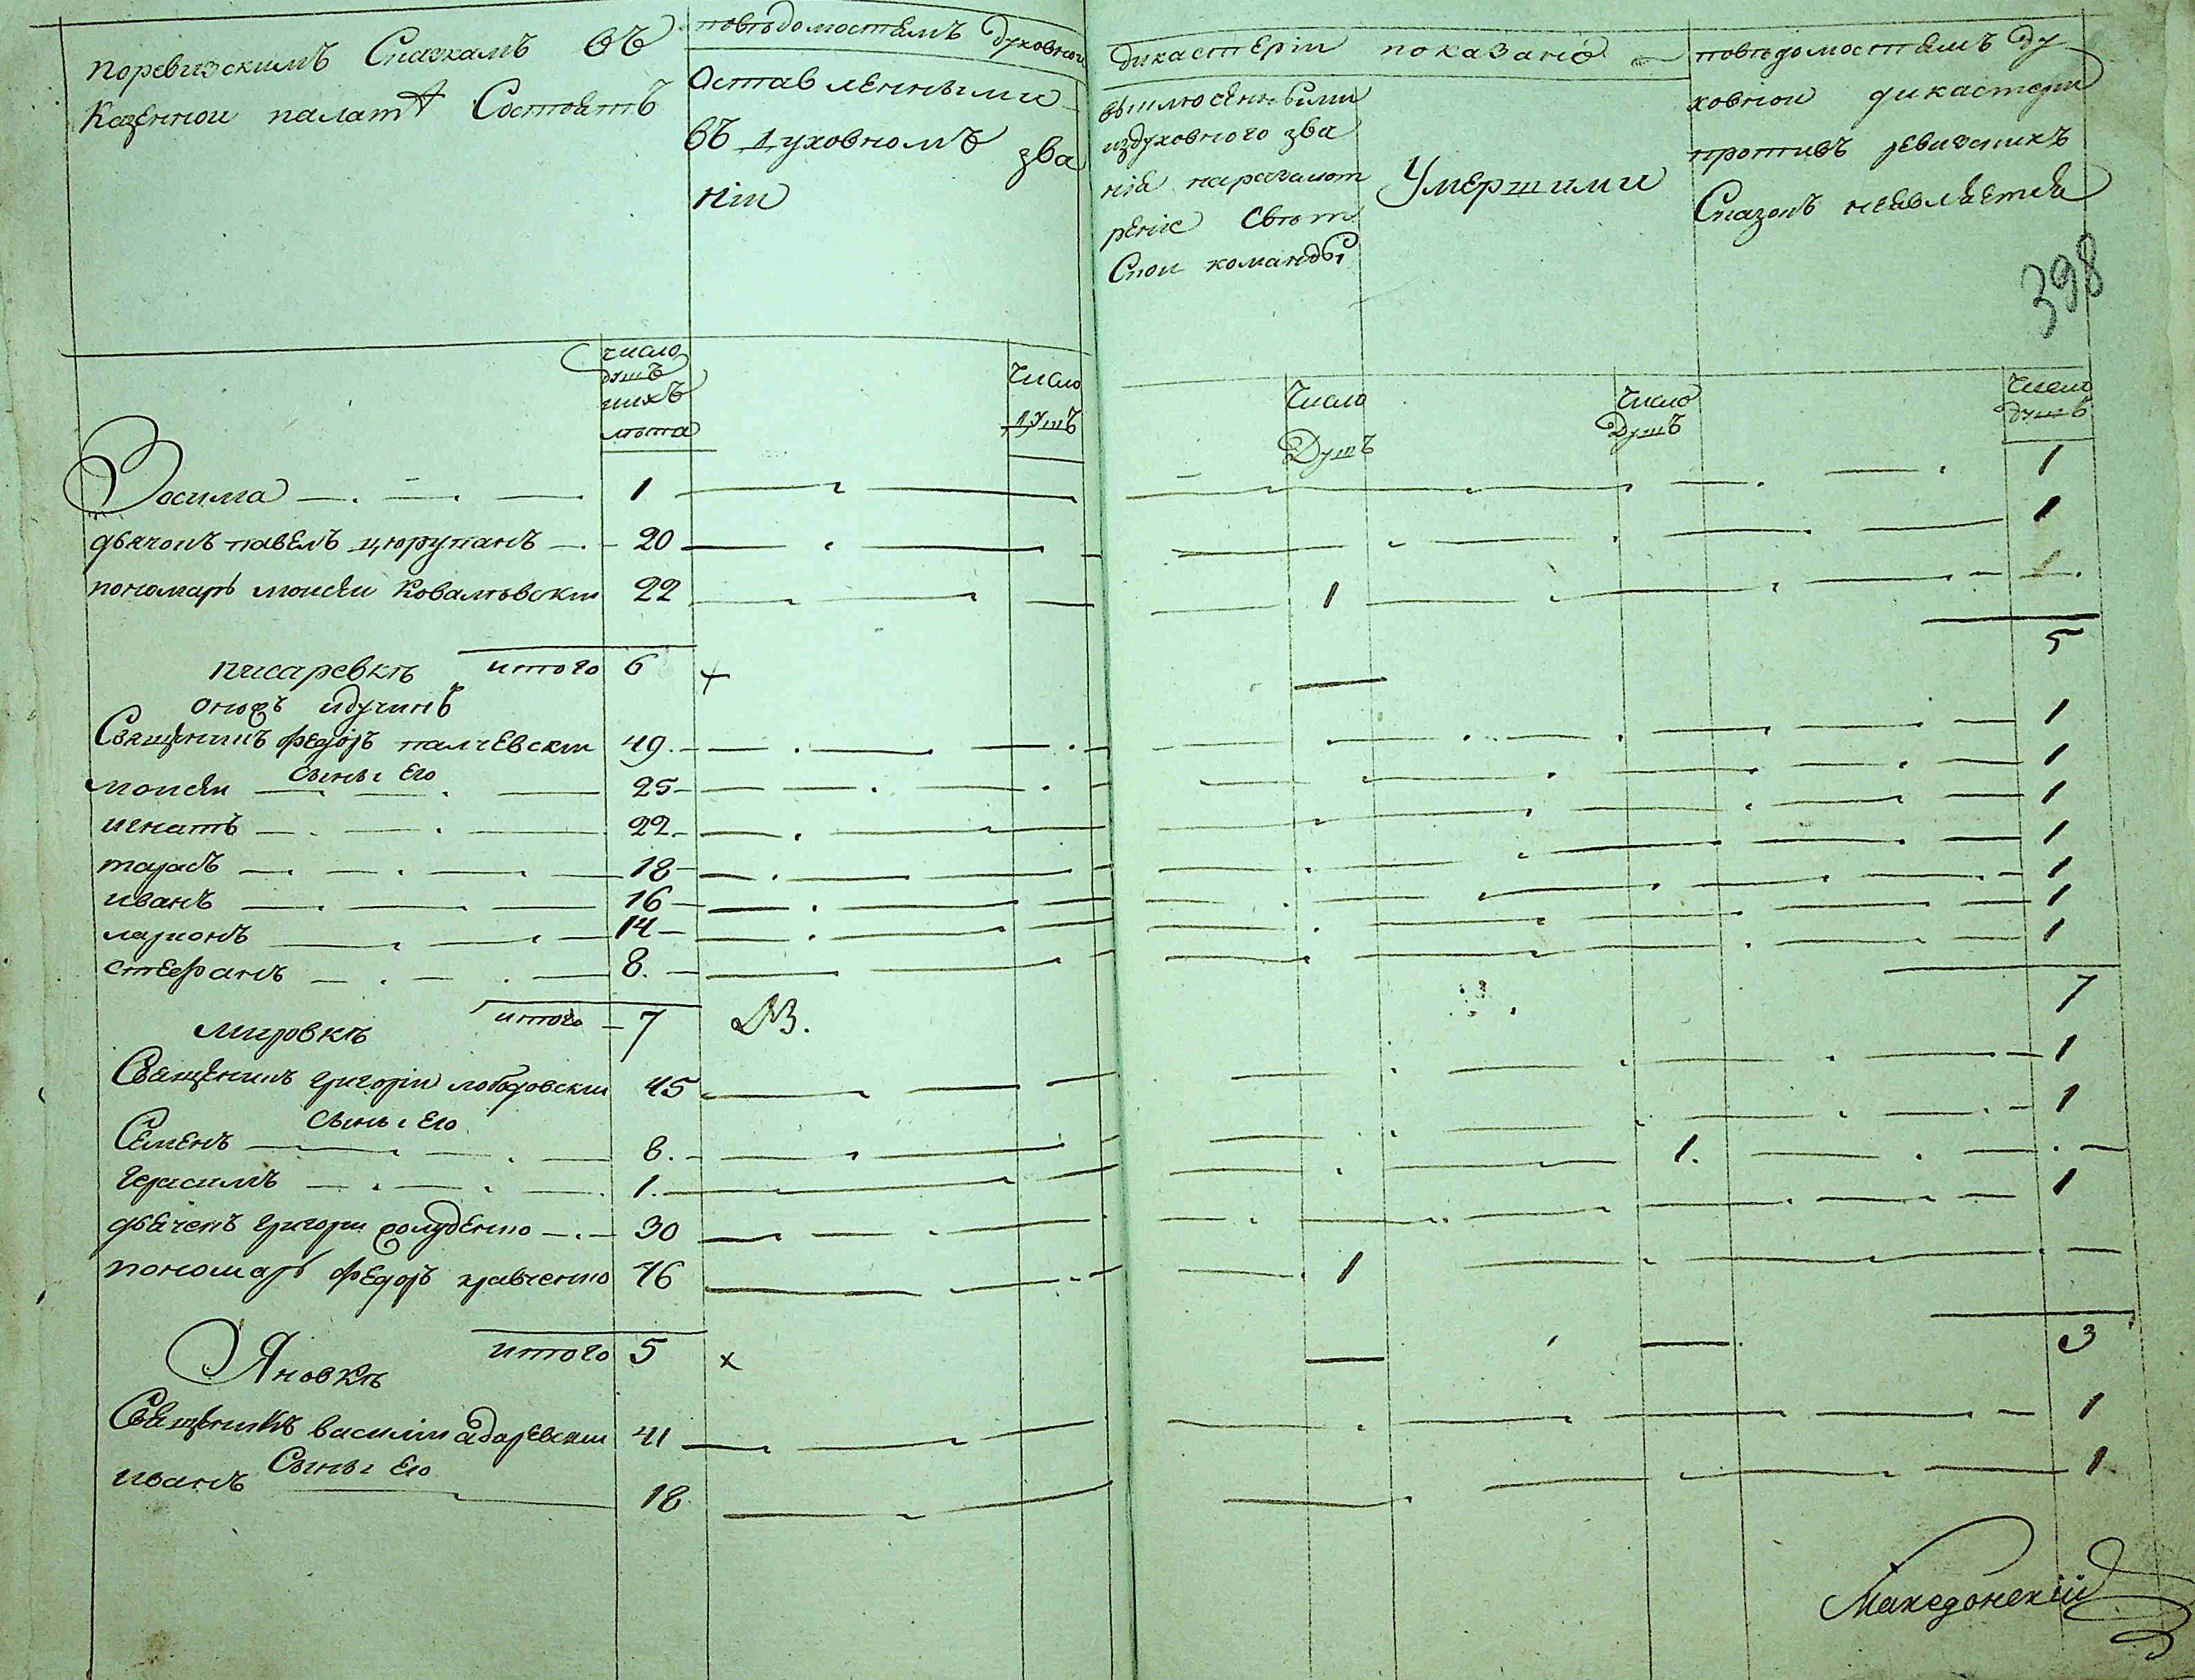 поревизскимъ Сказкамъ въ
Казеннои палатѣ Состоятъ
повѣдомостямъ духовнои
Оставленными
въ духовномъ зва
нiи
дикастерiи показано
выключенными
издуховного зва
нiя наразсмот
ренiе Свѣт
Скои команды
Умершими
повѣдомостямъ ду
ховнои дикастерiи
противъ ревизкихъ
Сказокъ неявляется
398
число
душъ
ихъ
лѣта
Число
душъ
Число
Душъ
Число
Душъ
Число
душъ
Зосима 1 1
дьячокъ павелъ цюрупакъ 20 1
пономарь моисеи Ковалѣвскии 22 1 1
5
писаревкѣ итого 6
Священикъ федоръ палчевскии 49 1
Сыны Его
моисеи 25 1
игнатъ 22 1
тарасъ 18 1
иванъ 16 1
ларионъ 14 1
стефанъ 8 1
итого 7 NB. 7
мировкѣ
Священикъ григорiи лободовскии 45 1
Сыны Его
Семенъ 8 1
герасимъ 1 1
дьячекъ григории голуденко 30 1
пономарь федоръ кравченко 76 1
итого 5 х 3
Яновкѣ
Священикъ василiи адаревскии 41 1
Сыны Его
иванъ 18 1
Македонскiй